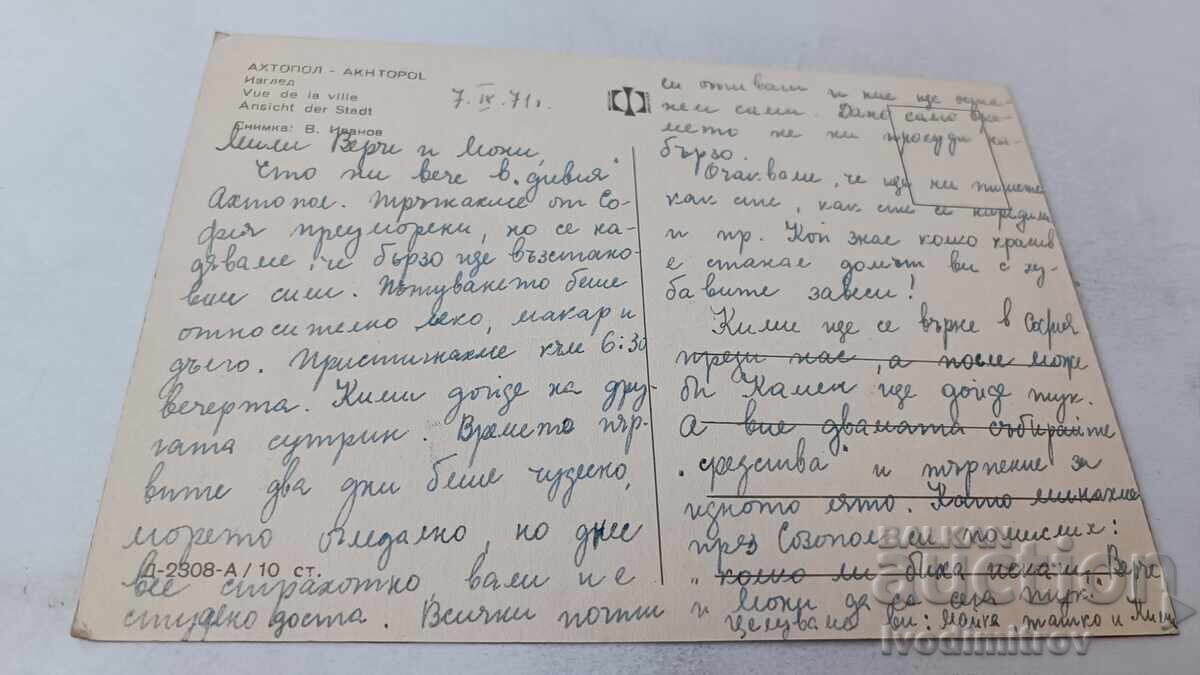 АХТОПОЛ - AKHTOPOL
Изглед
Vue de la ville
Ansicht der Stadt
Снимка: В. Иванов
7.IX.71г.
Мили Верче и Мони,
Ето ни вече в "дивия"
Ахтопол. Тръгнахме от Со-
фия преуморени, но се на-
дяваме, че бързо ще възстано-
вим сили. Пътуването беше
относително леко, макар и
дълго. Пристигнахме към 6:30
вечерта. Кими дойде на дру-
гата сутрин. Времето пър-
вите два дни беше чудесно,
морето огледално, но днес
е страхотно, вали и е
студено доста. Всички почти
Д-2308-А/10 ст.
си отиват и ние ще оста-
нем сами. Дано само вре-
мето не ни прокуди на-
бързо.
Очакваме, че ще ни пишете
как сте, как сте се наредили
и пр. Кой знае колко красив
е станал домът ви с ху-
бавите завеси!
Кими ще се върне в София
преди нас, а после може
би Камен ще дойде тук.
А вие двамата събирайте
"средства" и търпение за
идното лято. Като минахме
през Созопол си помислих:
"колко ли биха искали Верче
и Мони да са сега тук."
Целуваме ви: мама, татко и Кими
БАЛКАН
auction
ivodimitrov